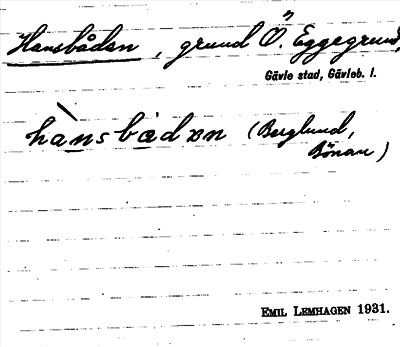 Hansbådan, grund Ö. Eggegrund,
Gävle stad, Gävleb. l.
hànsbådan (Berglund,
Bönan)
EMIL LEMHAGEN 1931.